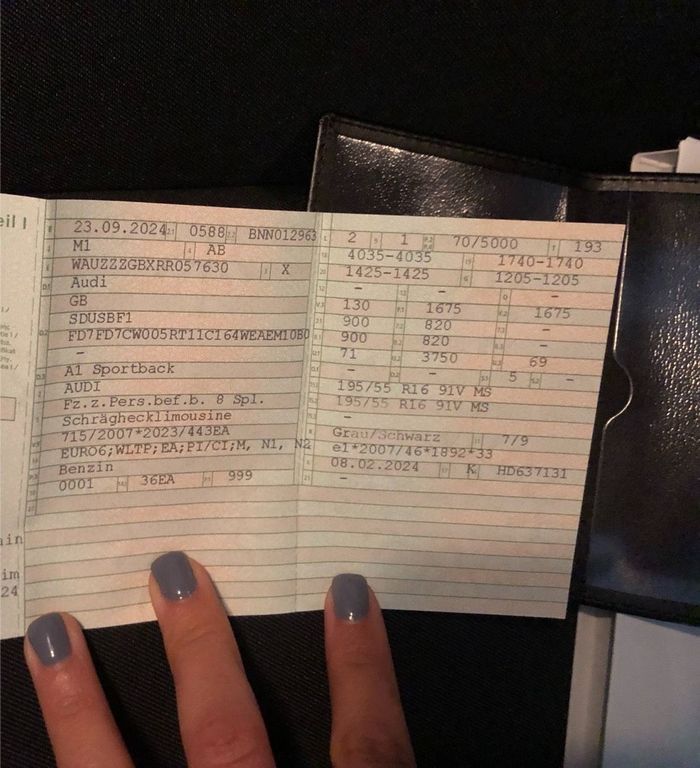 eil I
23.09.2024 0588 BNN012963
M1 AB
WAUZZZGBXRR057630 X
Audi
GB
SDUSBF1
FD7FD7CW005RT11C164WEAEM10B0
-
A1 Sportback
AUDI
Fz.z.Pers.bef.b. 8 Spl.
Schräghecklimousine
715/2007*2023/443EA
EURO6;WLTP;EA;PI/CI;M, N1, N2
Benzin
0001 36EA 999
2 1 70/5000 193
4035-4035 1740-1740
1425-1425 1205-1205
- - -
130 1675 1675
900 820 -
900 820 -
71 3750 69
- - 5 -
195/55 R16 91V MS
195/55 R16 91V MS
-
Grau/Schwarz 7/9
e1*2007/46*1892*33
08.02.2024 K HD637131
-
ain
im
24